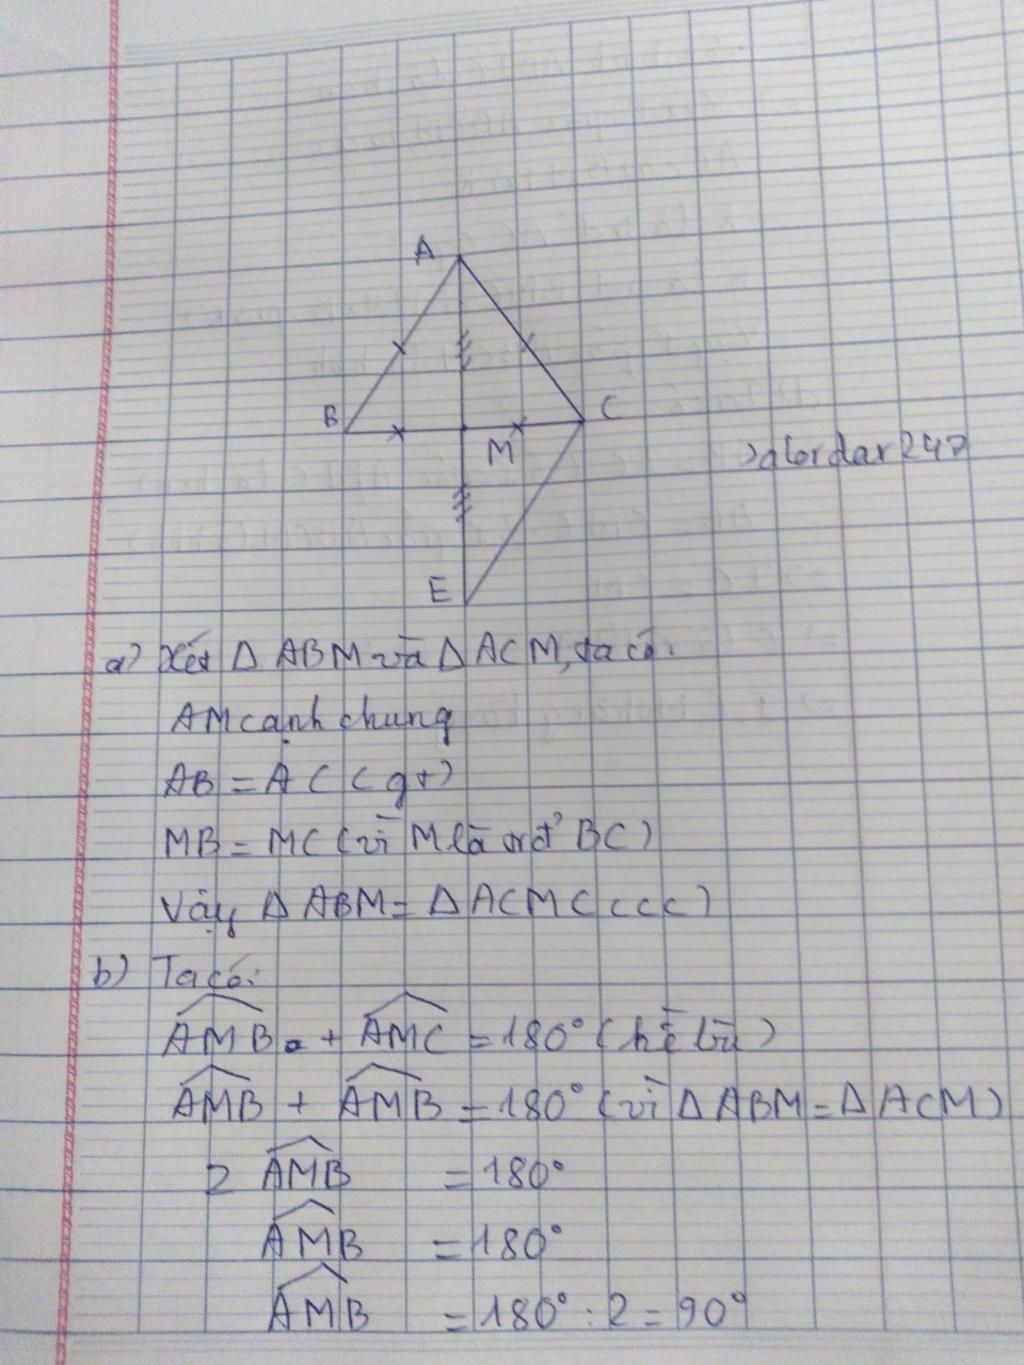 A
B
C
M
E
a) Xét Δ ABM và Δ ACM, ta có:
AM cạnh chung
AB = AC (gt)
MB = MC (vì M là trđ BC)
Vậy Δ ABM = Δ ACM (ccc)
b) Ta có:
AMB + AMC = 180° (kề bù)
AMB + AMB = 180° (vì Δ ABM = Δ ACM)
2 AMB = 180°
AMB = 180°
AMB = 180° : 2 = 90°